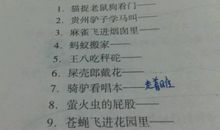 1. 猫捉老鼠狗看门——
2. 贵州驴子学马叫——
3. 麻雀飞进烟囱里——
4. 蚂蚁搬家——
5. 王八吃秤砣——
6. 屎壳郎戴花——
7. 骑驴看唱本——走着瞧
8. 萤火虫的屁股——
9. 苍蝇飞进花园里——